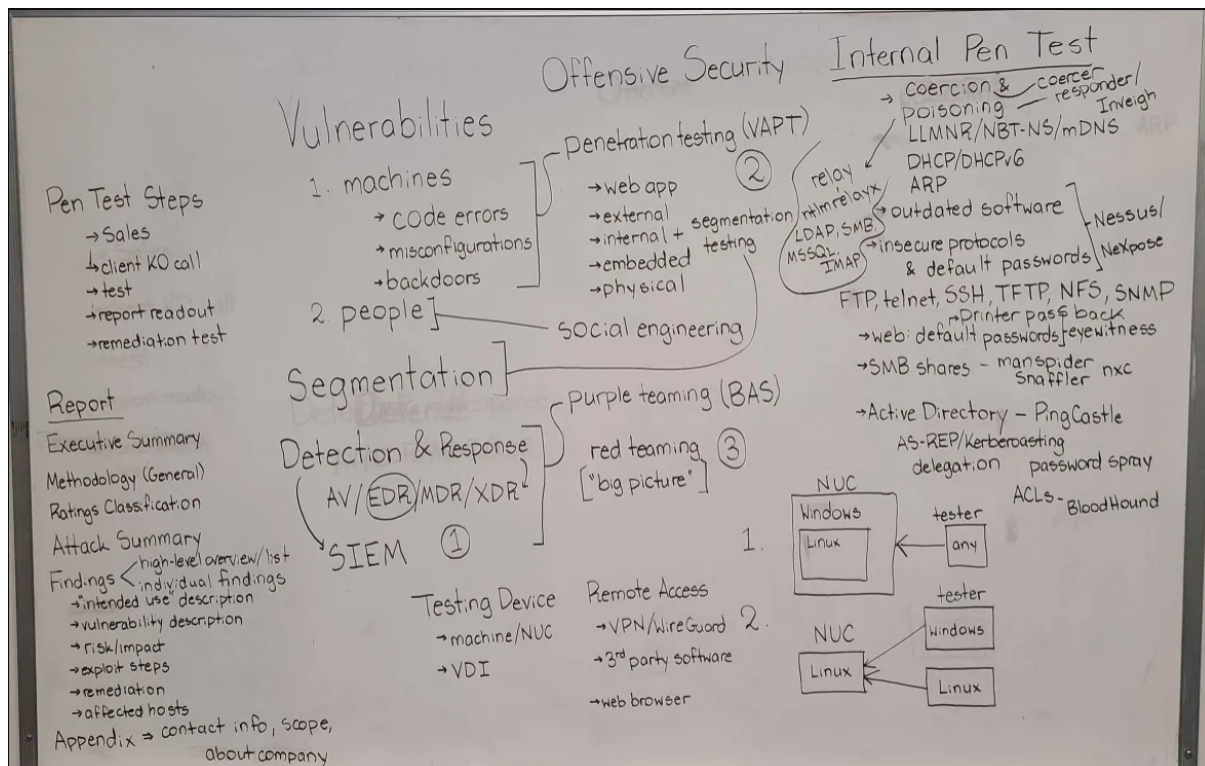 Pen Test Steps
→Sales
↳client KO call
→test
→report readout
→remediation test
Report
Executive Summary
Methodology (General)
Ratings Classification
Attack Summary
Findings < high-level overview/list
individual findings
→"intended use" description
→vulnerability description
→risk/impact
→exploit steps
→remediation
→affected hosts
Appendix ⇒ contact info, scope,
about company
Vulnerabilities
1. machines
→code errors
→misconfigurations
→backdoors
2. people]
Segmentation]
Detection & Response
AV/EDR/MDR/XDR
SIEM ①
Offensive Security
Penetration testing (VAPT)
②
→web app
→external
→internal + segmentation
testing
→embedded
→physical
social engineering
purple teaming (BAS)
red teaming ③
["big picture"]
Testing Device
→machine/NUC
→VDI
Remote Access
→VPN/WireGuard
→3rd party software
→web browser
Internal Pen Test
→ coercion & — coercer
poisoning — responder/
Inveigh
LLMNR/NBT-NS/mDNS
DHCP/DHCPv6
ARP
relay
ntlmrelayx
LDAP, SMB,
MSSQL,
IMAP
→outdated software
→insecure protocols
& default passwords
Nessus/
Nexpose
FTP, telnet, SSH, TFTP, NFS, SNMP
→Printer pass back
→web: default passwords}-eyewitness
→SMB shares - manspider
Snaffler nxc
→Active Directory - PingCastle
AS-REP/Kerberoasting
delegation password spray
ACLs - BloodHound
1.
NUC
Windows
Linux
tester
any
2.
NUC
Linux
tester
windows
Linux